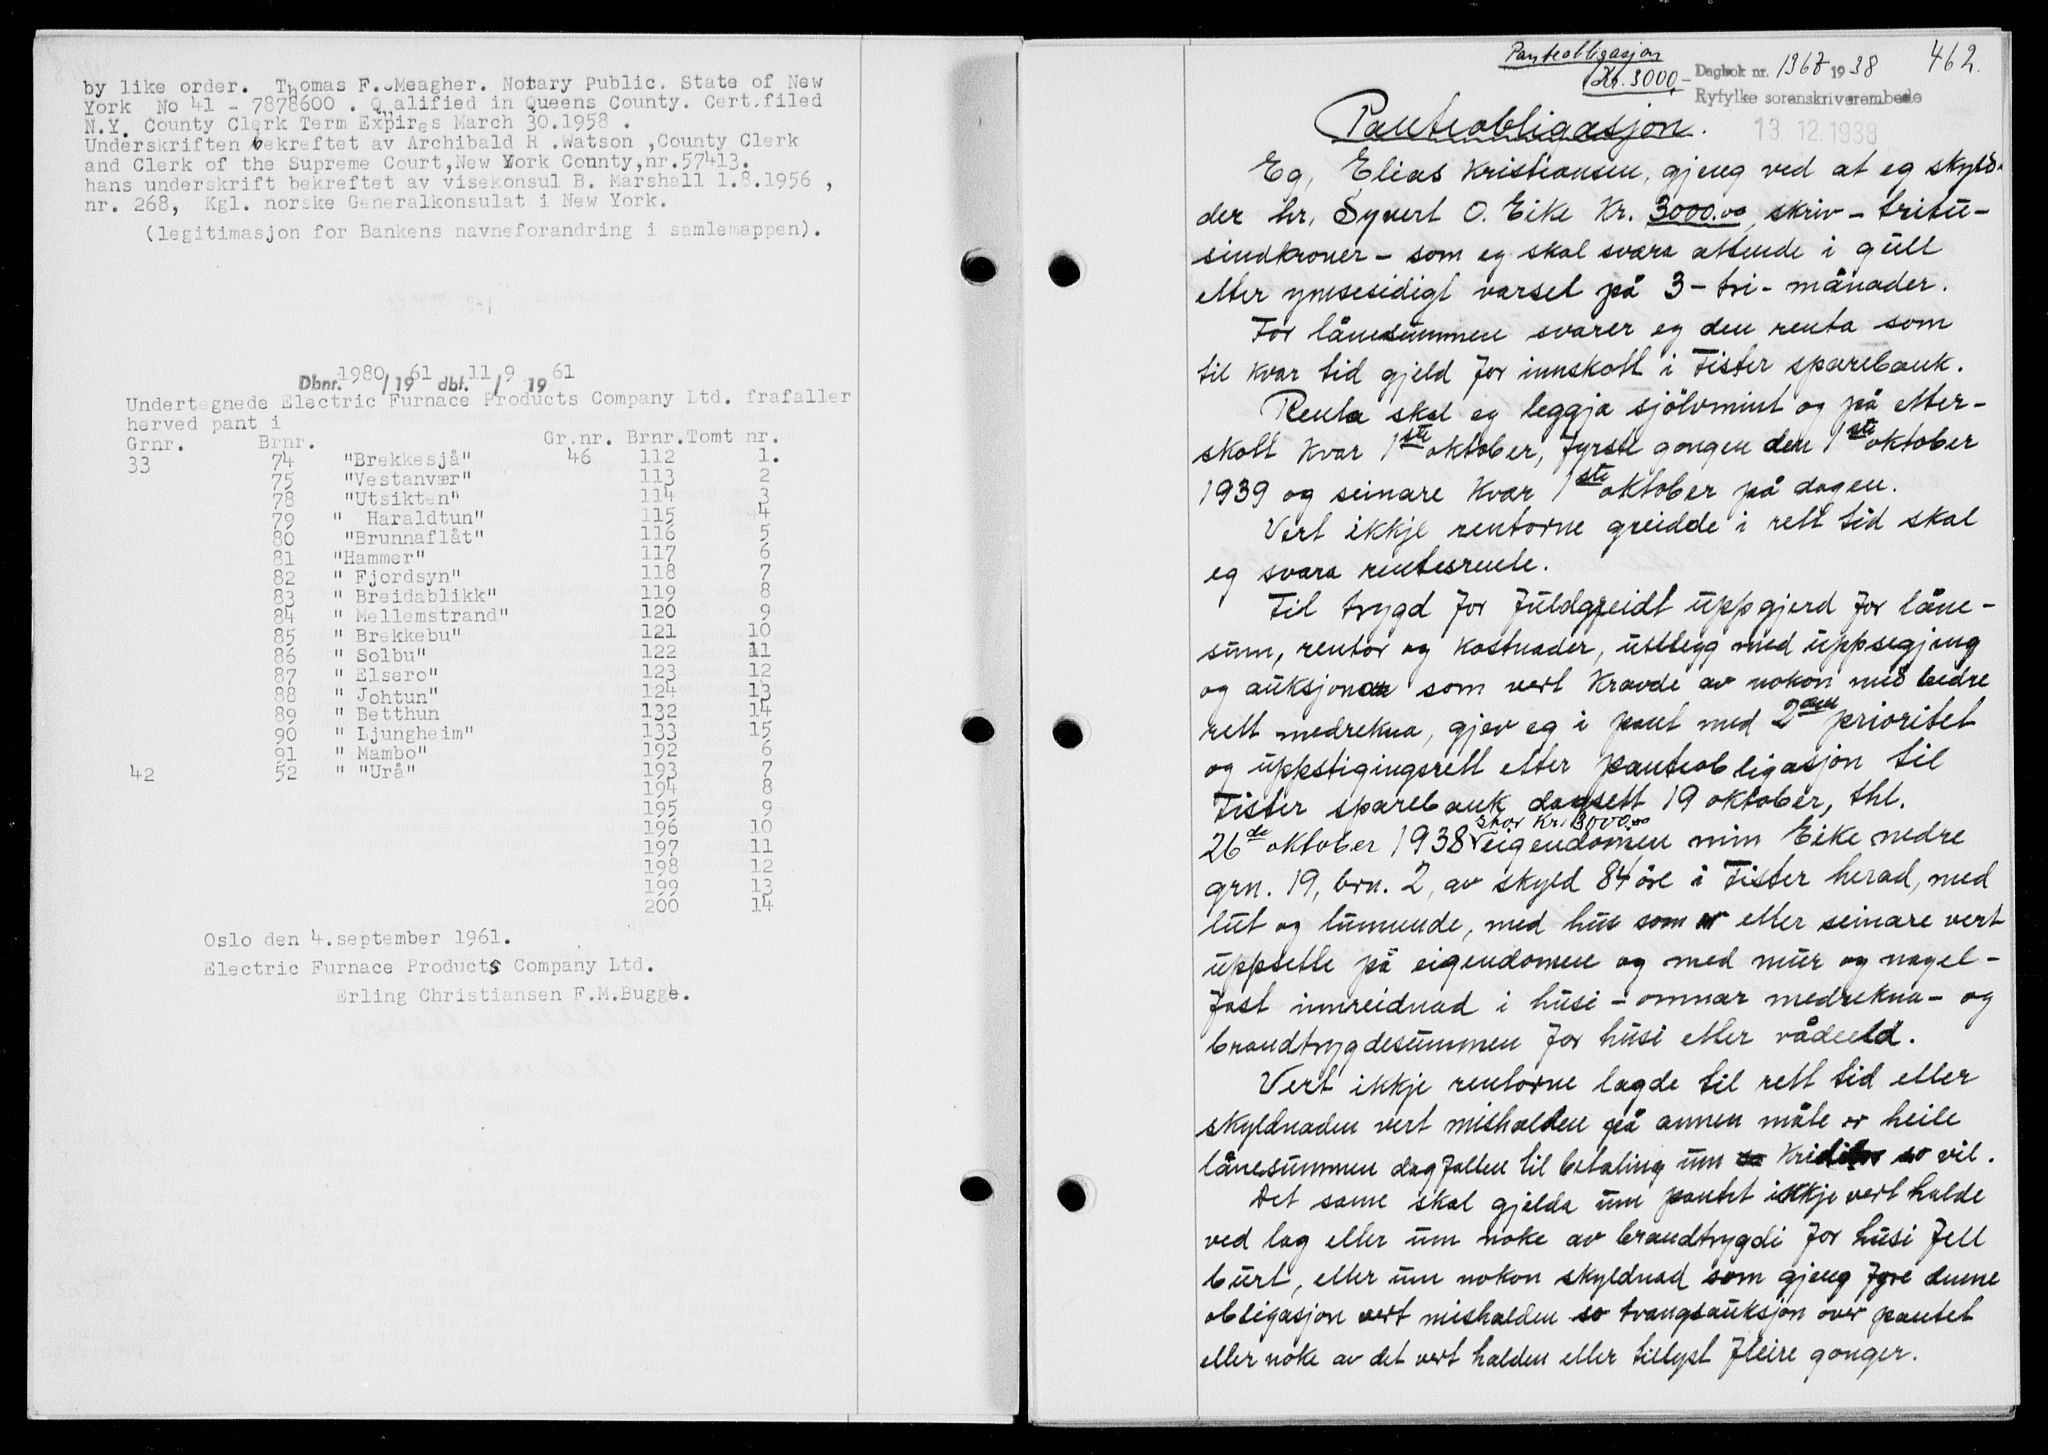 by like order. Thomas F. Meagher. Notary Public. State of New
York No 41 - 7878600 . Qualified in Queens County. Cert.filed
N.Y. County Clerk Term Expires March 30.1958 .
Underskriften bekreftet av Archibald R .Watson ,County Clerk
and Clerk of the Supreme Court,New York County,nr.57413.
hans underskrift bekreftet av visekonsul B. Marshall 1.8.1956 ,
nr. 268, Kgl. norske Generalkonsulat i New York.
(legitimasjon for Bankens navneforandring i samlemappen).
Dbnr. 1980/19 61 dbf. 11/9 19 61
Undertegnede Electric Furnace Products Company Ltd. frafaller
herved pant i
Grnr. Brnr. Gr.nr. Brnr. Tomt nr.
33 74 "Brekkesjå" 46 112 1.
75 "Vestanvær" 113 2
78 "Utsikten" 114 3
79 " Haraldtun" 115 4
80 "Brunnaflåt" 116 5
81 "Hammer" 117 6
82 " Fjordsyn" 118 7
83 " Breidablikk" 119 8
84 " Mellemstrand" 120 9
85 " Brekkebu" 121 10
86 " Solbu" 122 11
87 " Elsero" 123 12
88 " Johtun" 124 13
89 " Betthun 132 14
90 " Ljungheim" 133 15
91 " Mambo" 192 6
42 52 " "Urå" 193 7
194 8
195 9
196 10
197 11
198 12
199 13
200 14
Oslo den 4.september 1961.
Electric Furnace Products Company Ltd.
Erling Christiansen F.M.Bugge.
Panteobligasjon
Kr. 3000,-
Dagbok nr. 1968 1938
462.
Ryfylke sorenskriverembede
13.12.1938
Panteobligasjon.
Eg, Elias Kristiansen, gjeng ved at eg skyld-
der hr. Syvert O. Eike Kr. 3000.00, skriv - tritu-
sindkroner - som eg skal svara attende i gull
etter ymsesidigt varsel på 3 - tri - månader.
For lånesummen svarer eg den renta som
til kvar tid gjeld for innskott i Fister sparebank.
Renta skal eg leggja sjölvmint og på etter-
skott kvar 1ste oktober, fyrste gongen den 1ste oktober
1939 og seinare kvar 1ste oktober på dagen.
Vert ikkje rentorne greidde i rett tid skal
eg svara rentesrente.
Til trygd for fuldgreidt uppgjerd for låne-
sum, rentor og kostnader, utlegg med uppsegjing
og auksjonar som vert kravde av nokon med bedre
rett medrekna, gjev eg i pant med 2dre prioritet
og uppstigingsrett etter panteobligasjon til
Fister sparebank dagsett 19 oktober, thl.
26de oktober 1938 stor kr. 3000.00 eigendomen min Eike nedre
grn. 19, brn. 2, av skyld 84 öre i Fister herad, med
lut og lunnende, med hus som er eller seinare vert
uppsette på eigendomen og med mur og nagel-
fast innreidnad i husi - omnar medrekna - og
brandtrygdesummen for husi etter vådeeld.
Vert ikkje rentorne lagde til rett tid eller
skyldnaden vert mishalden på annen måte er heile
lånesummen dagfallen til betaling um kreditor so vil.
Det same skal gjelda um pantet ikkje vert halde
ved lag eller um noke av brandtrygdi for husi fell
burt, eller um nokon skyldnad som gjeng fyre denne
obligasjon vert mishalden so tvangsauksjon over pantet
eller noke av det vert halden eller tillyst fleire gonger.